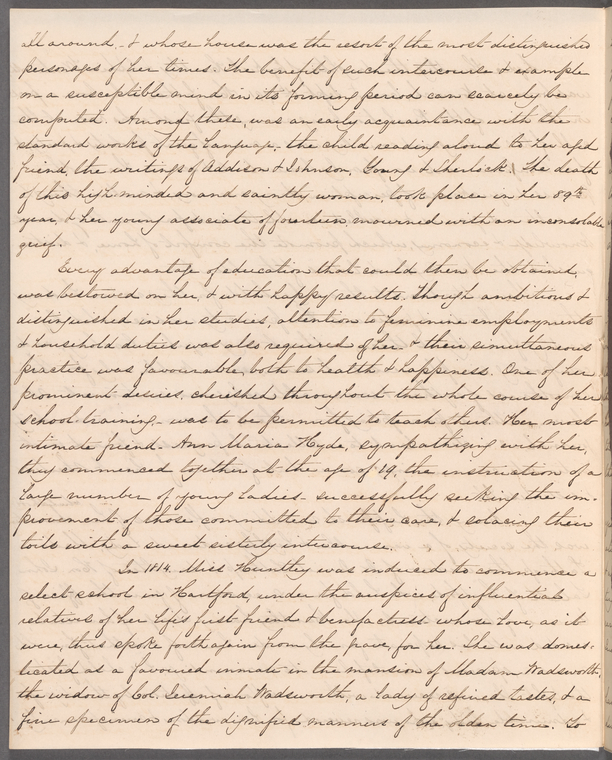 all around, - & whose house was the resort of the most distinguished
personages of her times. The benefit of such intercourse & example
on a susceptible mind in its forming period can scarcely be
computed. Among these, was an early acquaintance with the
standard works of the language, the child reading aloud to her aged
friend, the writings of Addison & Johnson, Young & Sherlock. The death
of this high minded and saintly woman, took place in her 89th
year, & her young associate of fourteen, mourned with an inconsolable
grief.
Every advantage of education that could then be obtained,
was bestowed on her, & with happy results. Though ambitious &
distinguished in her studies, attention to feminine employments
& household duties was also required of her & their simultaneous
practice was favourable, both to health & happiness. One of her
prominent desires, cherished throughout the whole course of her
school-training, - was to be permitted to teach others. Her most
intimate friend, Ann Maria Hyde, sympathizing with her,
they commenced together at the age of 19, the instruction of a
large number of young ladies, successfully seeking the im-
provement of those committed to their care, & solacing their
toils with a sweet sisterly intercourse.
In 1814. Miss Huntley was induced to commence a
select school in Hartford, under the auspices of influential
relatives of her life's first friend & benefactress whose love, as it
were, thus spoke forth again from the grave, for her. She was domes-
ticated as a favoured inmate in the mansion of Madam Wadsworth,
the widow of Col. Jeremiah Wadsworth, a lady of refined tastes, & a
fine specimen of the dignified manners of the olden time. To